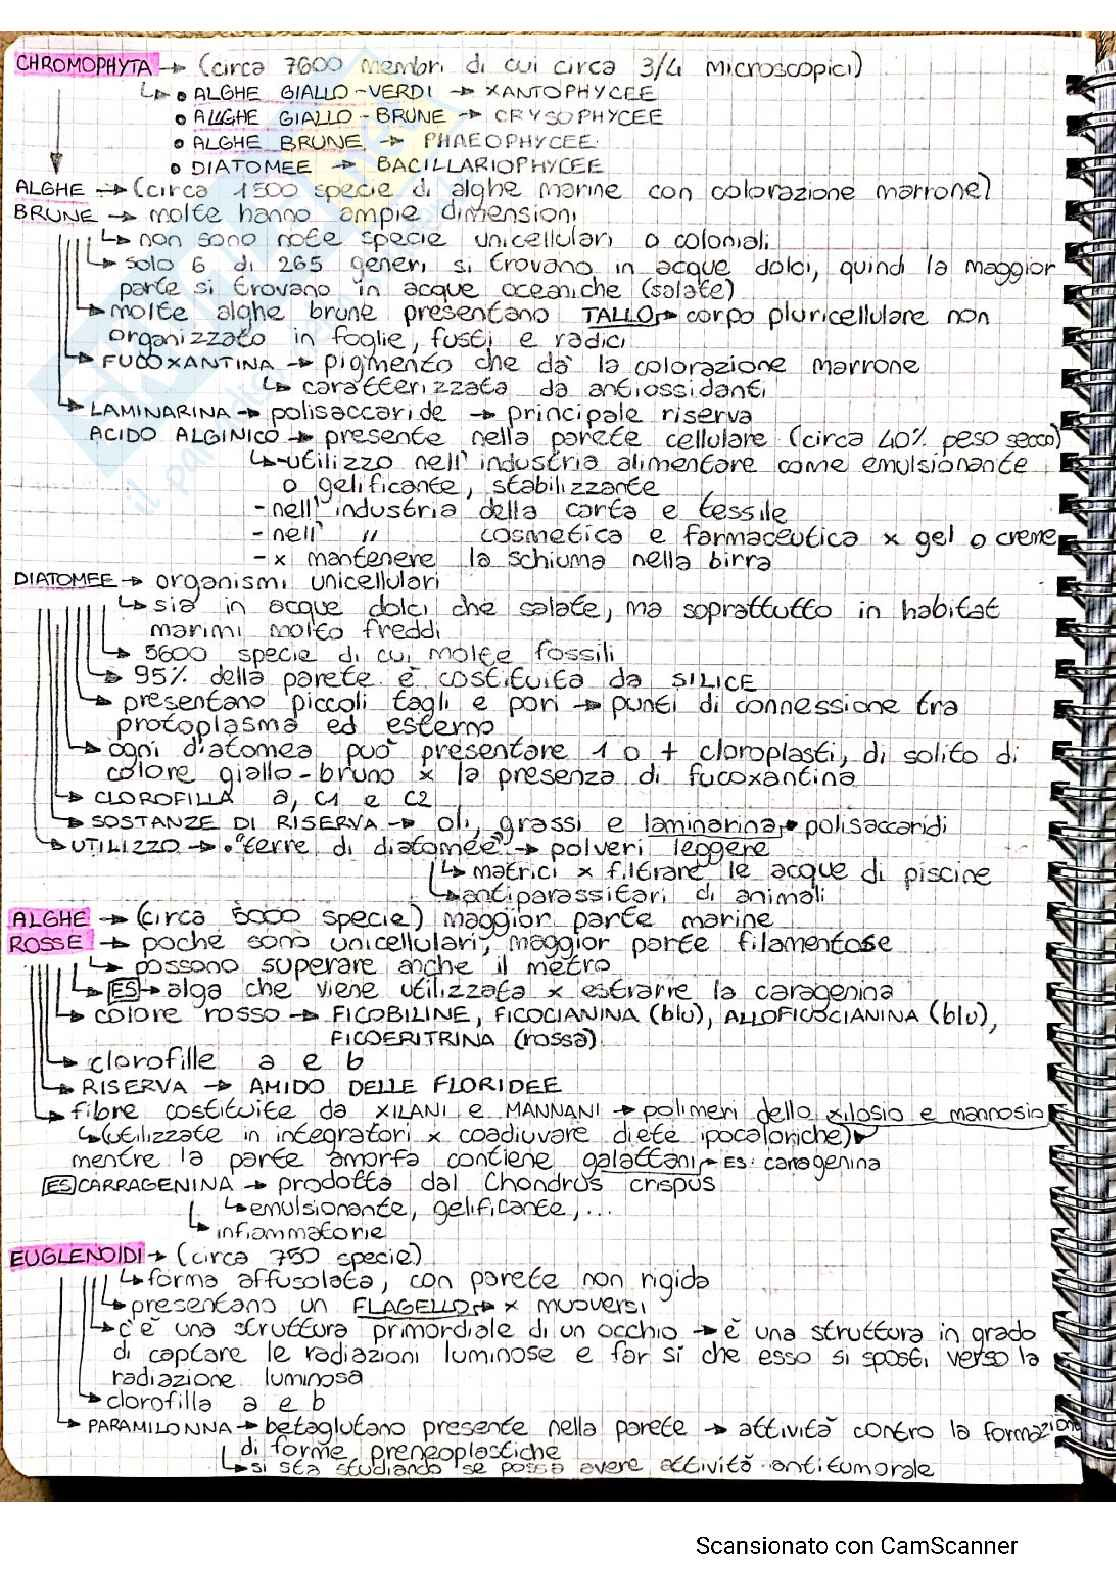 CHROMOPHYTA → (circa 7600 membri di cui circa 3/4 microscopici)
• ALGHE GIALLO-VERDI → XANTOPHYCEE
• ALGHE GIALLO-BRUNE → CRYSOPHYCEE
• ALGHE BRUNE → PHAEOPHYCEE
• DIATOMEE → BACILLARIOPHYCEE
ALGHE → (circa 1500 specie di alghe marine con colorazione marrone)
BRUNE → molte hanno ampie dimensioni
↳ non sono note specie unicellulari o coloniali
↳ solo 6 di 265 generi si trovano in acque dolci, quindi la maggior
parte si trovano in acque oceaniche (salate)
↳ molte alghe brune presentano TALLO → corpo pluricellulare non
organizzato in foglie, fusti e radici
↳ FUCOXANTINA → pigmento che dà la colorazione marrone
↳ caratterizzata da antiossidanti
↳ LAMINARINA → polisaccaride → principale riserva
ACIDO ALGINICO → presente nella parete cellulare (circa 40% peso secco)
↳ -utilizzo nell'industria alimentare come emulsionante
o gelificante, stabilizzante
- nell'industria della carta e tessile
- nell' " cosmetica e farmaceutica x gel o creme
- x mantenere la schiuma nella birra
DIATOMEE → organismi unicellulari
↳ sia in acque dolci che salate, ma soprattutto in habitat
marini molto freddi
↳ 5600 specie di cui molte fossili
↳ 95% della parete è costituita da SILICE
↳ presentano piccoli tagli e pori → punti di connessione tra
protoplasma ed esterno
↳ ogni diatomea può presentare 1 o + cloroplasti, di solito di
colore giallo-bruno x la presenza di fucoxantina
↳ CLOROFILLA a, C1 e C2
↳ SOSTANZE DI RISERVA → oli, grassi e laminarina → polisaccaridi
↳ UTILIZZO → • "terre di diatomee" → polveri leggere
↳ matrici x filtrare le acque di piscine
↳ antiparassitari di animali
ALGHE → (circa 5000 specie) maggior parte marine
ROSSE → poche sono unicellulari, maggior parte filamentose
↳ possono superare anche il metro
↳ ES → alga che viene utilizzata x estrarre la caragenina
↳ colore rosso → FICOBILINE, FICOCIANINA (blu), ALLOFICOCIANINA (blu),
FICOERITRINA (rossa)
↳ clorofille a e b
↳ RISERVA → AMIDO DELLE FLORIDEE
↳ fibre costituite da XILANI e MANNANI → polimeri dello xilosio e mannosio
↳ (utilizzate in integratori x coadiuvare diete ipocaloriche)
mentre la parte amorfa contiene galattani → ES: caragenina
ES CARRAGENINA → prodotta dal Chondrus crispus
↳ emulsionante, gelificante,...
↳ infiammatorie
EUGLENOIDI → (circa 750 specie)
↳ forma affusolata, con parete non rigida
↳ presentano un FLAGELLO → x muoversi
↳ c'è una struttura primordiale di un occhio → è una struttura in grado
di captare le radiazioni luminose e far si che esso si sposti verso la
radiazione luminosa
↳ clorofilla a e b
↳ PARAMILONNA → betaglutano presente nella parete → attività contro la formazione
di forme preneoplastiche
↳ si sta studiando se possa avere attività antitumorale
Scansionato con CamScanner